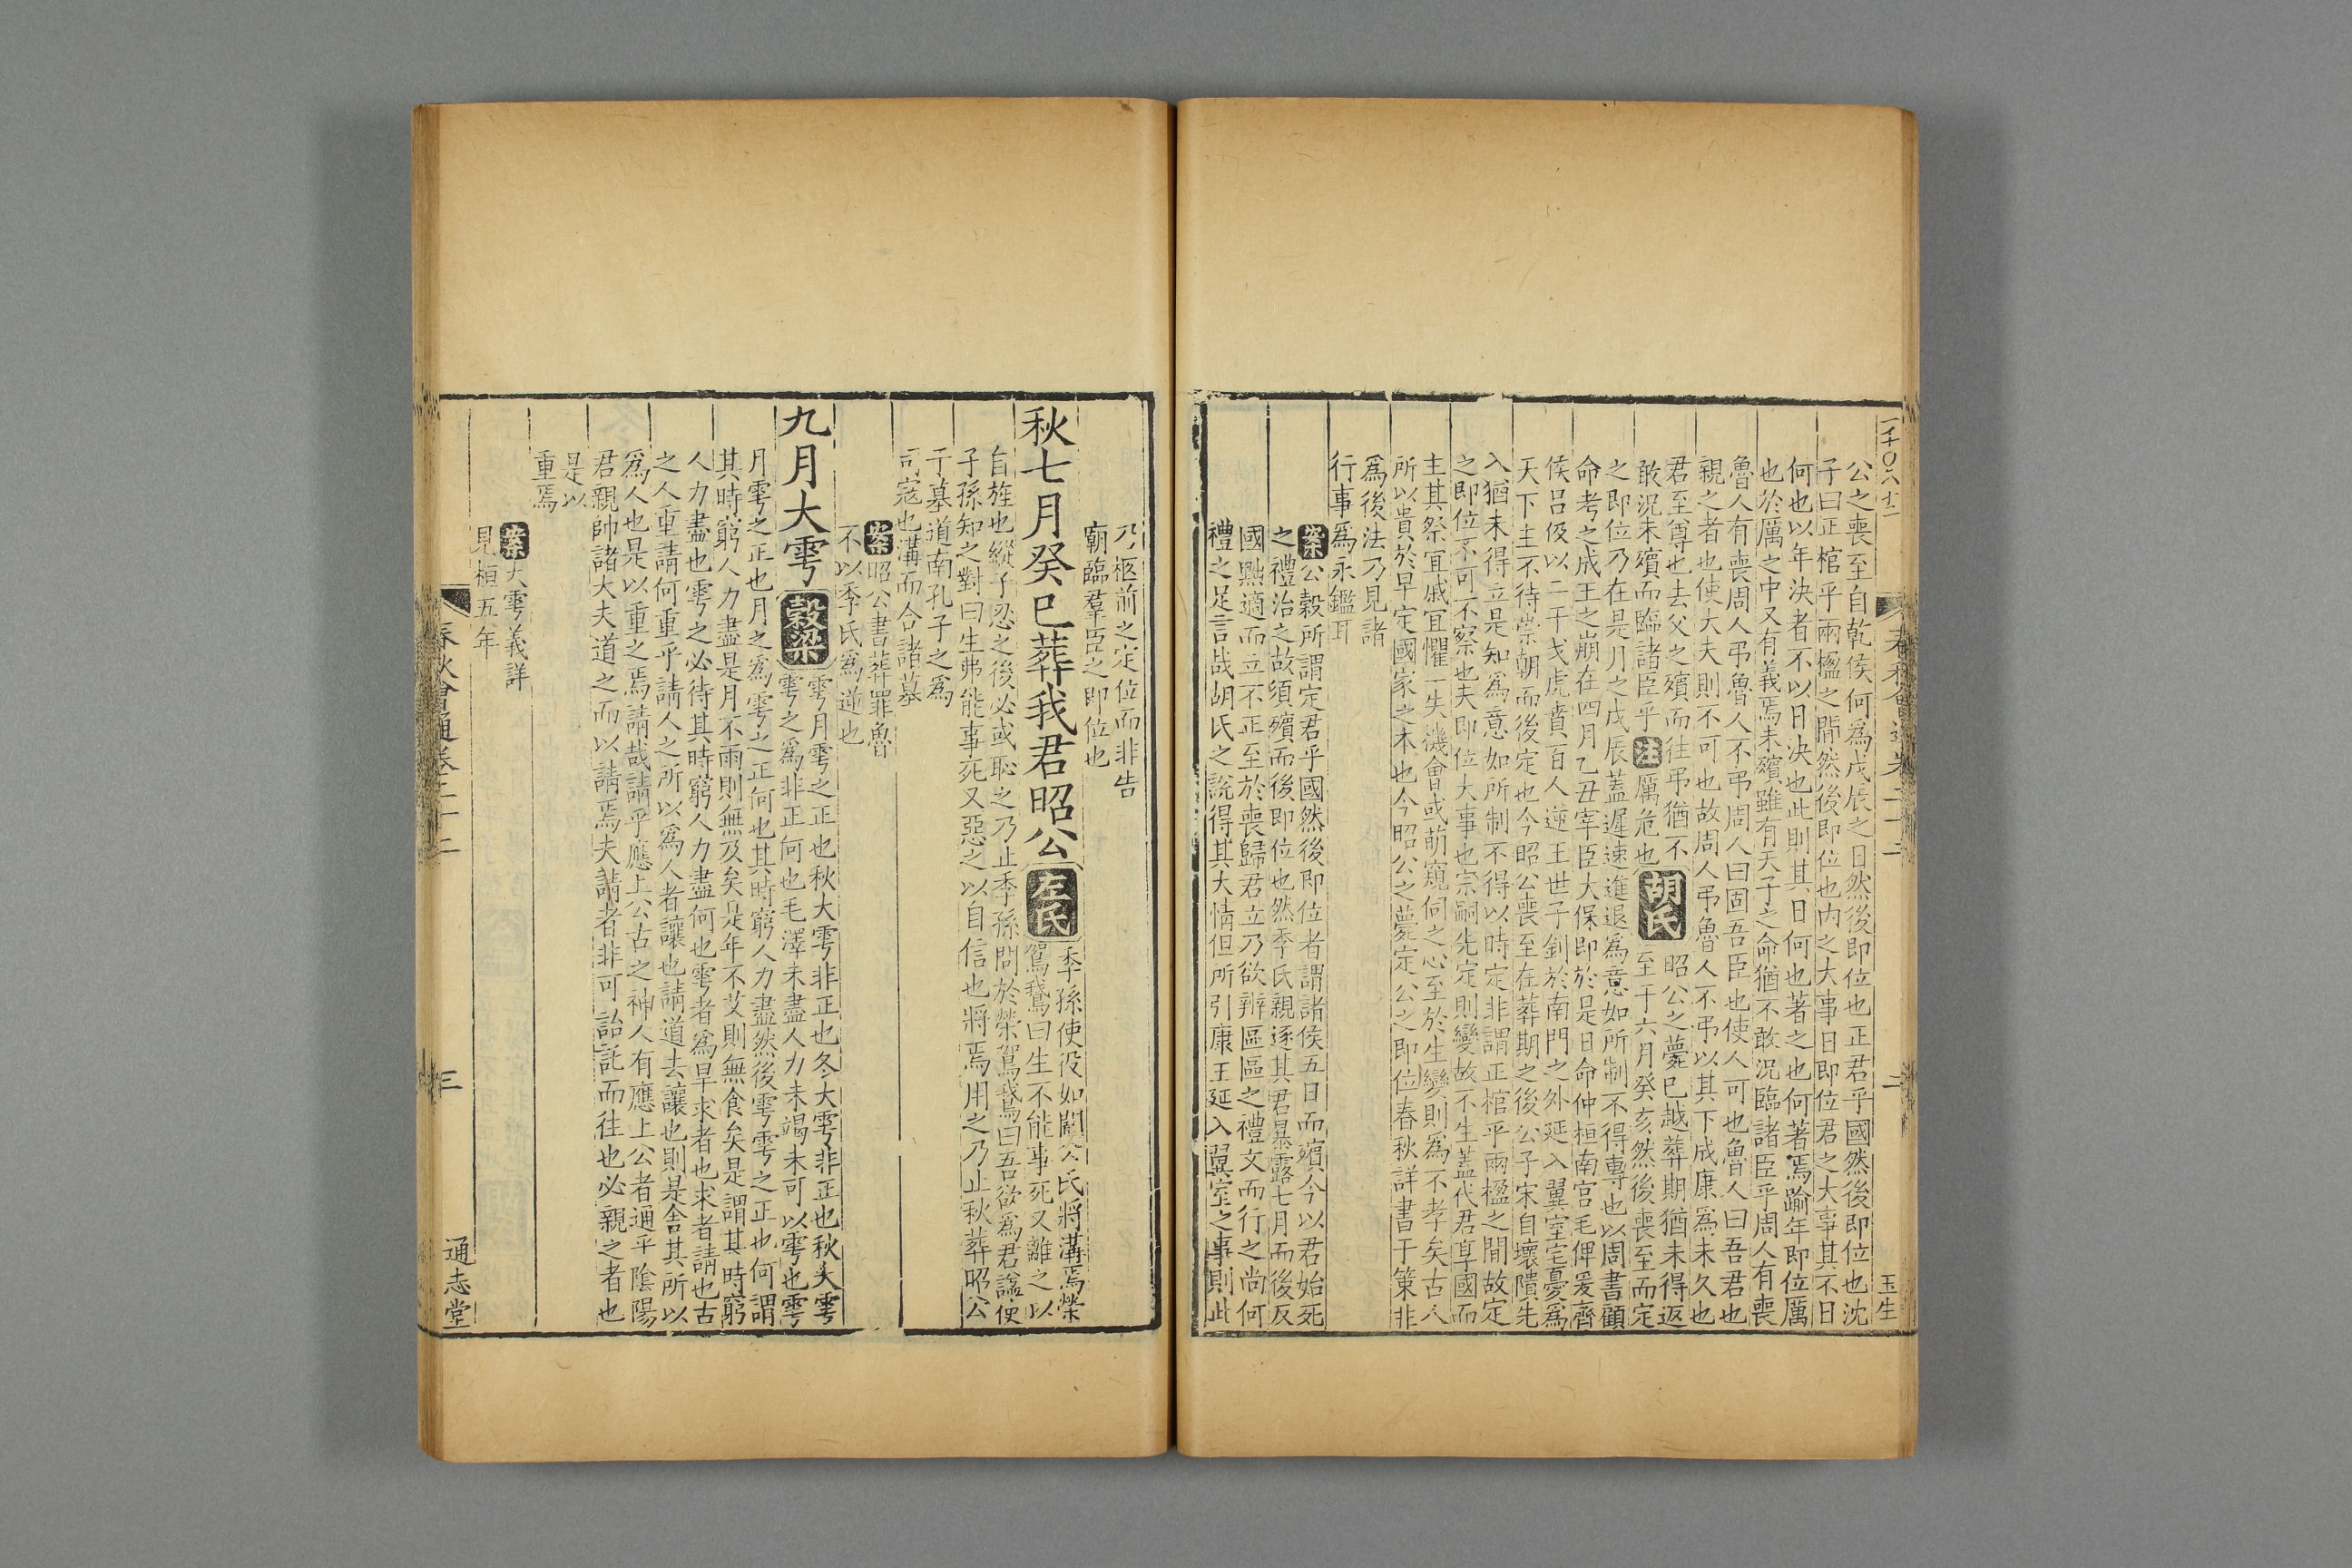 一千〇六十二
春秋會通卷二十二
二
玉生
公之喪至自乾侯何爲戊辰之日然後即位也正君乎國然後即位也沈
子曰正棺乎兩楹之間然後即位也內之大事日即位君之大事其不日
何也以年決者不以日決也此則其日何也著之也何著焉踰年即位厲
也於厲之中又有義焉未殯雖有天子之命猶不敢況臨諸臣乎周人有喪
魯人有喪周人弔魯人不弔周人曰固吾臣也使人可也魯人曰吾君也
親之者也使大夫則不可也故周人弔魯人不弔以其下成康爲未久也
君至尊也去父之殯而往弔猶不
敢況未殯而臨諸臣乎注厲危也
胡氏
昭公之薨已越葬期猶未得返
至于六月癸亥然後喪至而定
之即位乃在是月之戊辰蓋遲速進退爲意如所制不得專也以周書顧
命考之成王之崩在四月乙丑宰臣大保即於是日命仲桓南宮毛俾爰齊
侯呂伋以二干戈虎賁百人逆王世子釗於南門之外延入翼室宅憂爲
天下主不待崇朝而後定也今昭公喪至在葬期之後公子宋自壞隤先
入猶未得立是知爲意如所制不得以時定非謂正棺乎兩楹之間故定
之即位不可不察也夫即位大事也宗嗣先定則變故不生蓋代君享國而
主其祭宜戚宜懼一失機會或萌窺伺之心至於生變則爲不孝矣古人
所以貴於早定國家之本也今昭公之薨定公之即位春秋詳書于策非
爲後法乃見諸
行事爲永鑑耳
案公穀所謂定君乎國然後即位者謂諸侯五日而殯今以君始死
之禮治之故須殯而後即位也然季氏親逐其君暴露七月而後反
國黜適而立不正至於喪歸君立乃欲辨區區之禮文而行之尚何
禮之足言哉胡氏之說得其大情但所引康王延入翼室之事則此
乃柩前之定位而非告
廟臨羣臣之即位也
秋七月癸巳葬我君昭公左氏
季孫使役如闞公氏將溝焉榮
駕鵝曰生不能事死又離之以
自旌也縱子忍之後必或恥之乃止季孫問於榮駕鵝曰吾欲爲君謚使
子孫知之對曰生弗能事死又惡之以自信也將焉用之乃止秋葬昭公
于墓道南孔子之爲
司寇也溝而合諸墓
案昭公書葬罪魯
不以季氏爲逆也
九月大雩穀梁
雩月雩之正也秋大雩非正也冬大雩非正也秋大雩
雩之爲非正何也毛澤未盡人力未竭未可以雩也雩
月雩之正也月之爲雩之正何也其時窮人力盡然後雩雩之正也何謂
其時窮人力盡是月不雨則無及矣是年不艾則無食矣是謂其時窮
人力盡也雩之必待其時窮人力盡何也雩者爲旱求者也求者請也古
之人重請何重乎請人之所以爲人者讓也請道去讓也則是舍其所以
爲人也是以重之焉請哉請乎應上公古之神人有應上公者通乎陰陽
君親帥諸大夫道之而以請焉夫請者非可詒託而往也必親之者也
是以
重焉
案大雩義詳
見桓五年
春秋會通卷二十二
三
通志堂